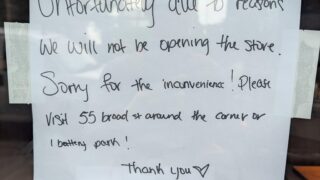 Unfortunately due to reasons
We will not be opening the store.
Sorry for the incanvenience! Please
Visit 55 broad st around the corner or
1 battery park!
Thank you♡